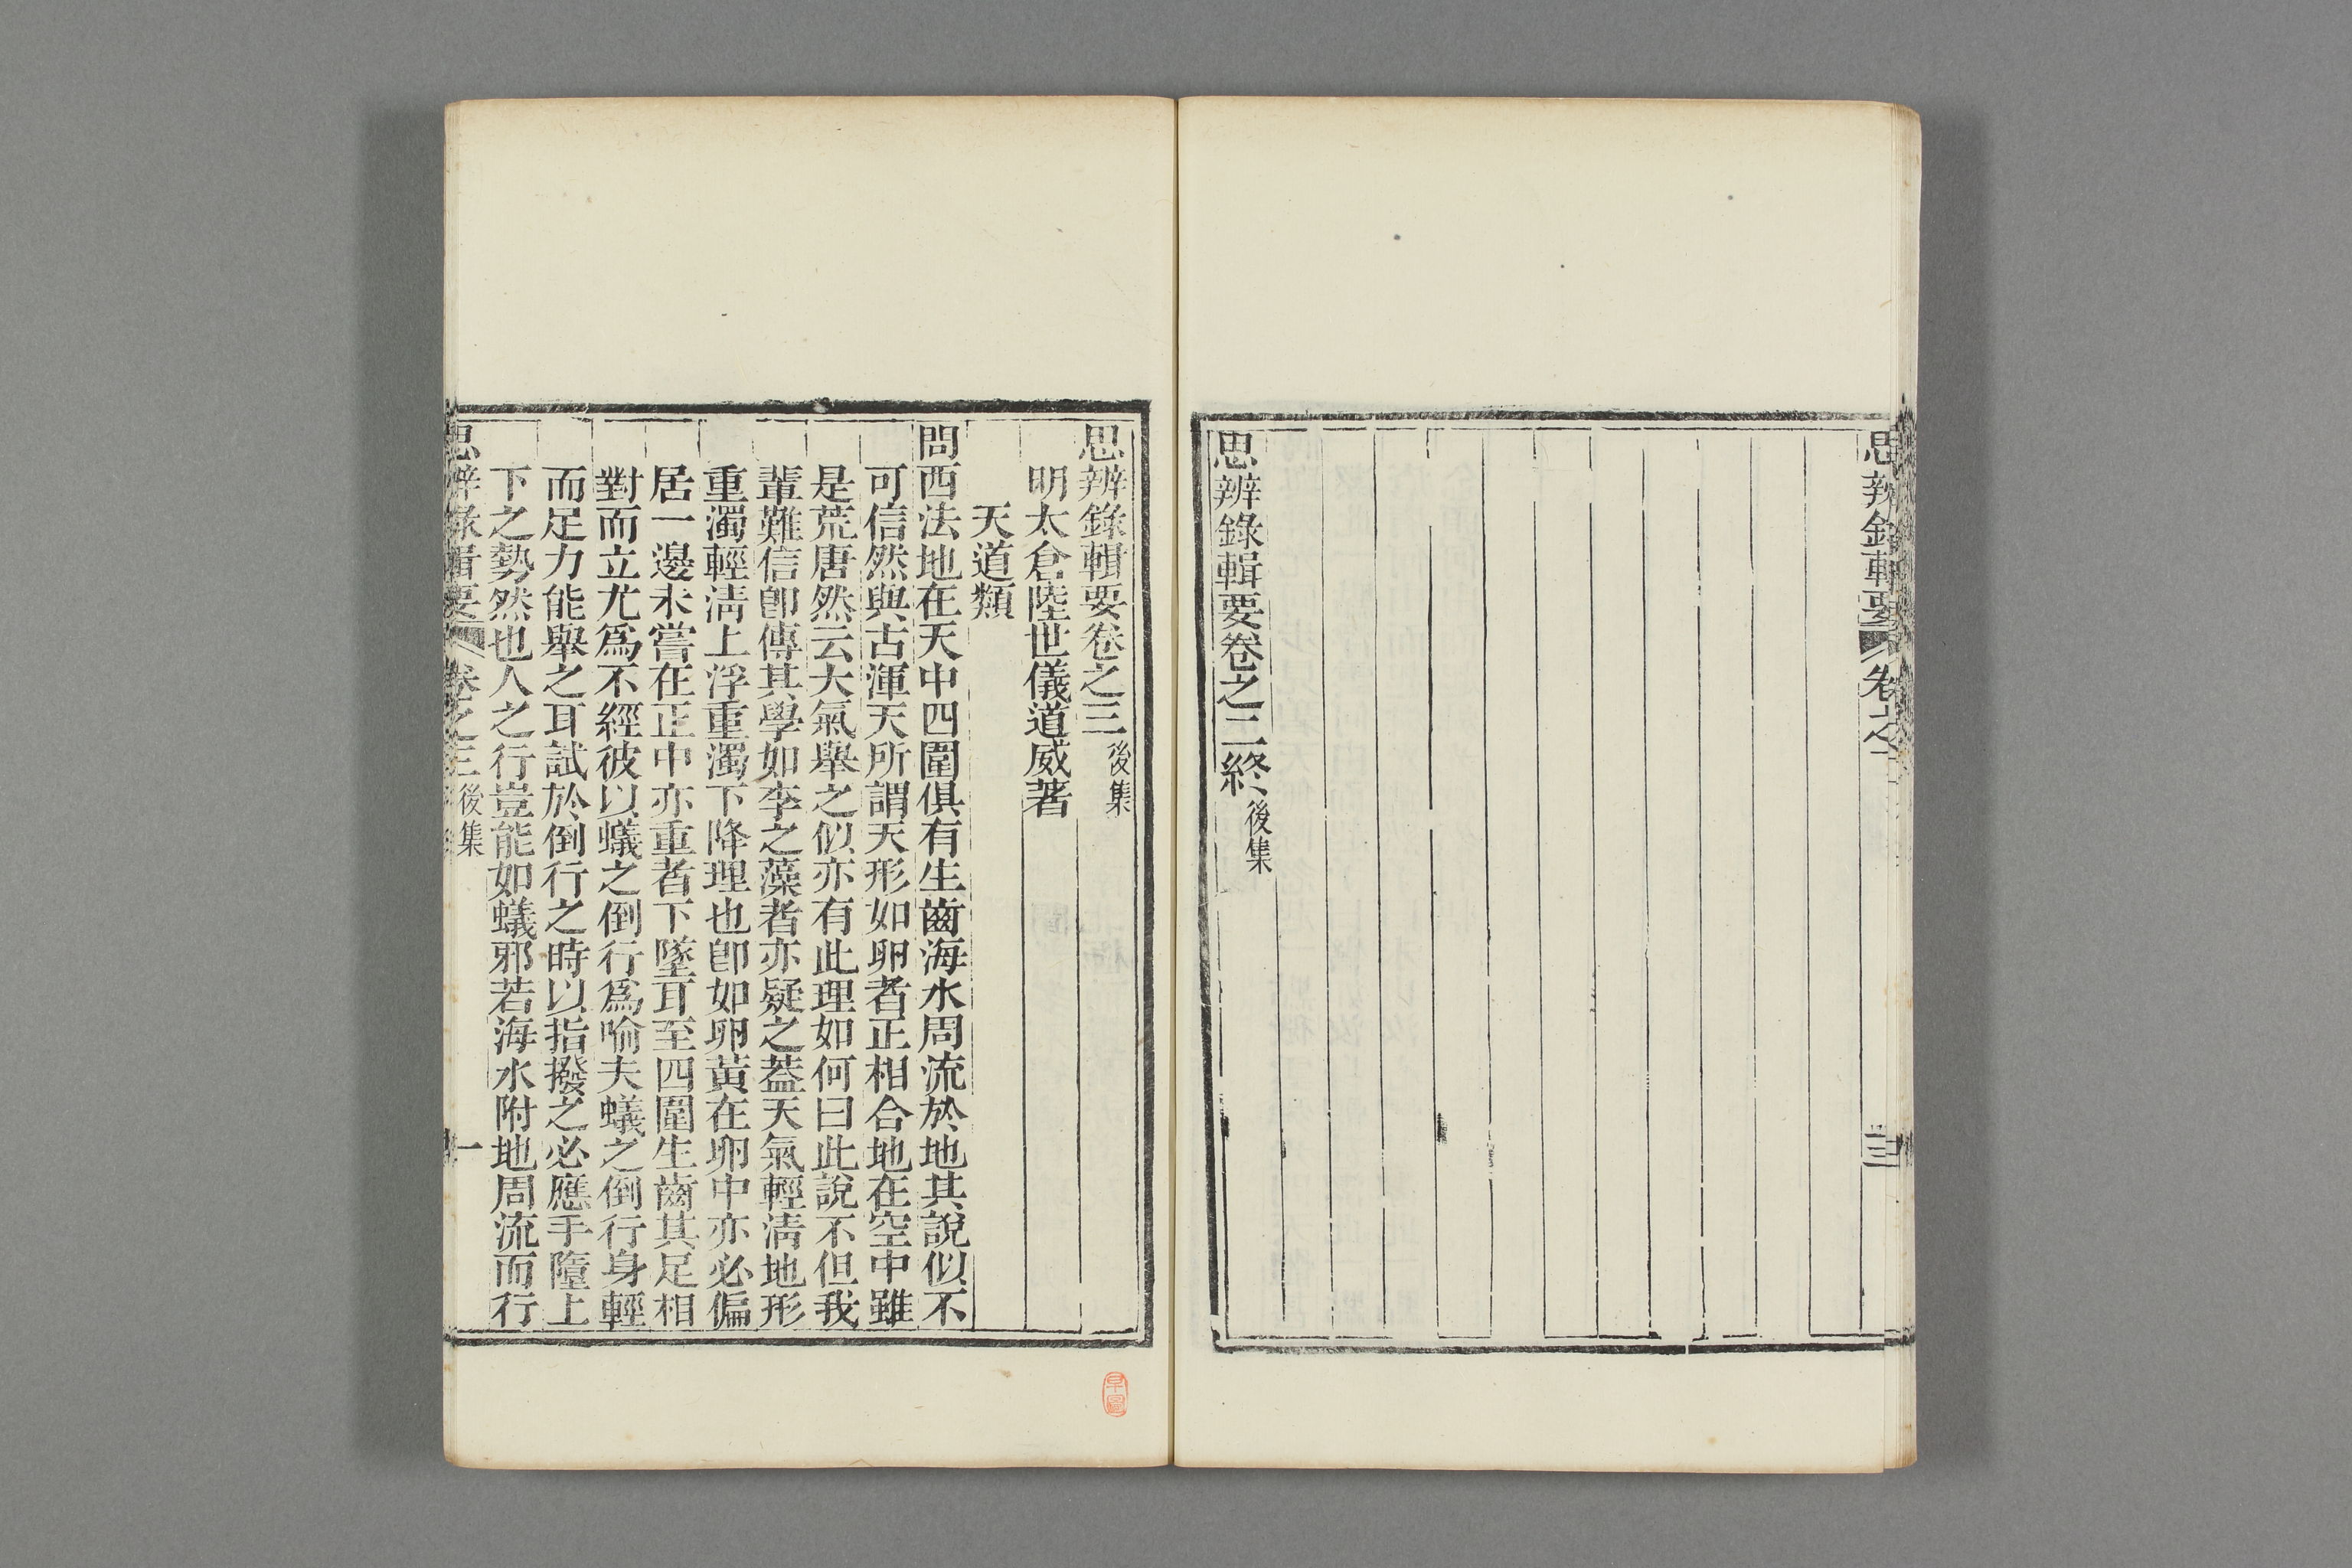 思辨錄輯要卷之二終後集
思辨錄輯要卷之三後集
明太倉陸世儀道威著
天道類
問西法地在天中四圍俱有生齒海水周流於地其說似不
可信然與古渾天所謂天形如卵者正相合地在空中雖
是荒唐然云大氣舉之似亦有此理如何曰此說不但我
輩難信卽傳其學如李之藻者亦疑之葢天氣輕淸地形
重濁輕淸上浮重濁下降理也卽如卵黃在卵中亦必偏
居一邊未嘗在正中亦重者下墜耳至四圍生齒其足相
對而立尤爲不經彼以蟻之倒行爲喻夫蟻之倒行身輕
而足力能舉之耳試於倒行之時以指撥之必應手隨上
下之勢然也人之行豈能如蟻邪若海水附地周流而行
思辨錄輯要 卷之三後集 一